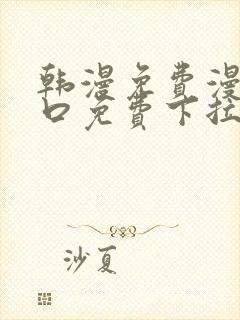 韩漫免费漫
口免费下拉
沙夏